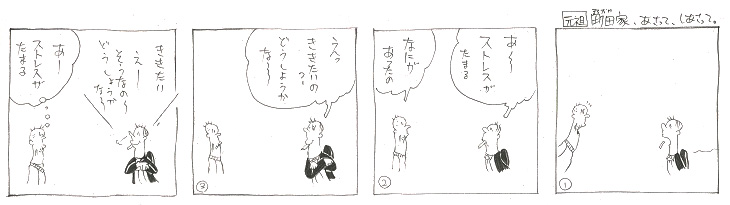 元祖 町田家、あさって、しあさって。
①
あ〜
ストレスが
たまる
なにが
あったの
②
えっ
ききたいの?
どうしようか
な〜
③
ききたい
えー
そうなの〜
どうしようか
な〜
あー
ストレスが
たまる